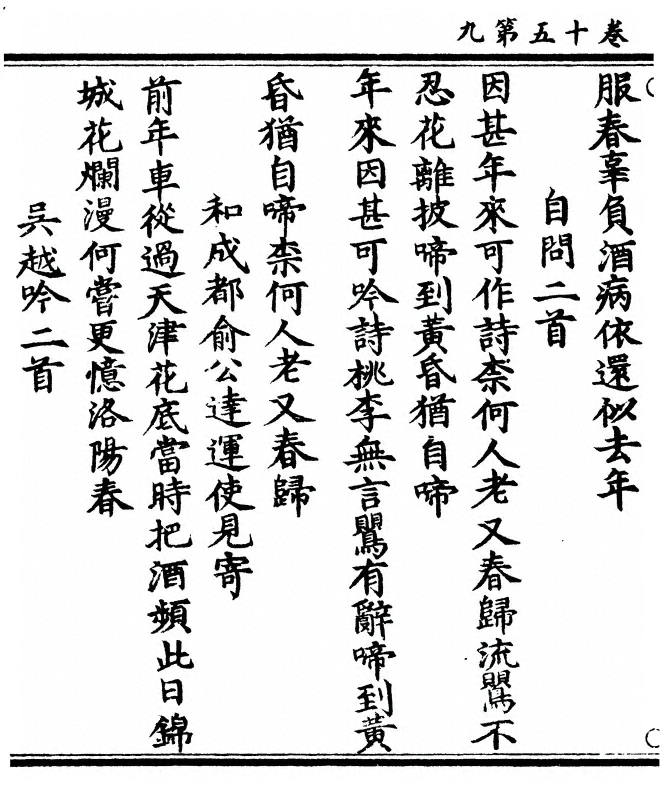 卷十五第九
服春辜負酒病依還似去年
自問二首
因甚年來可作詩柰何人老又春歸流鸎不
忍花離披啼到黃昏猶自啼
年來因甚可吟詩桃李無言鸎有辭啼到黃
昏猶自啼柰何人老又春歸
和成都俞公達運使見寄
前年車從過天津花底當時把酒頻此日錦
城花爛漫何嘗更憶洛陽春
吳越吟二首